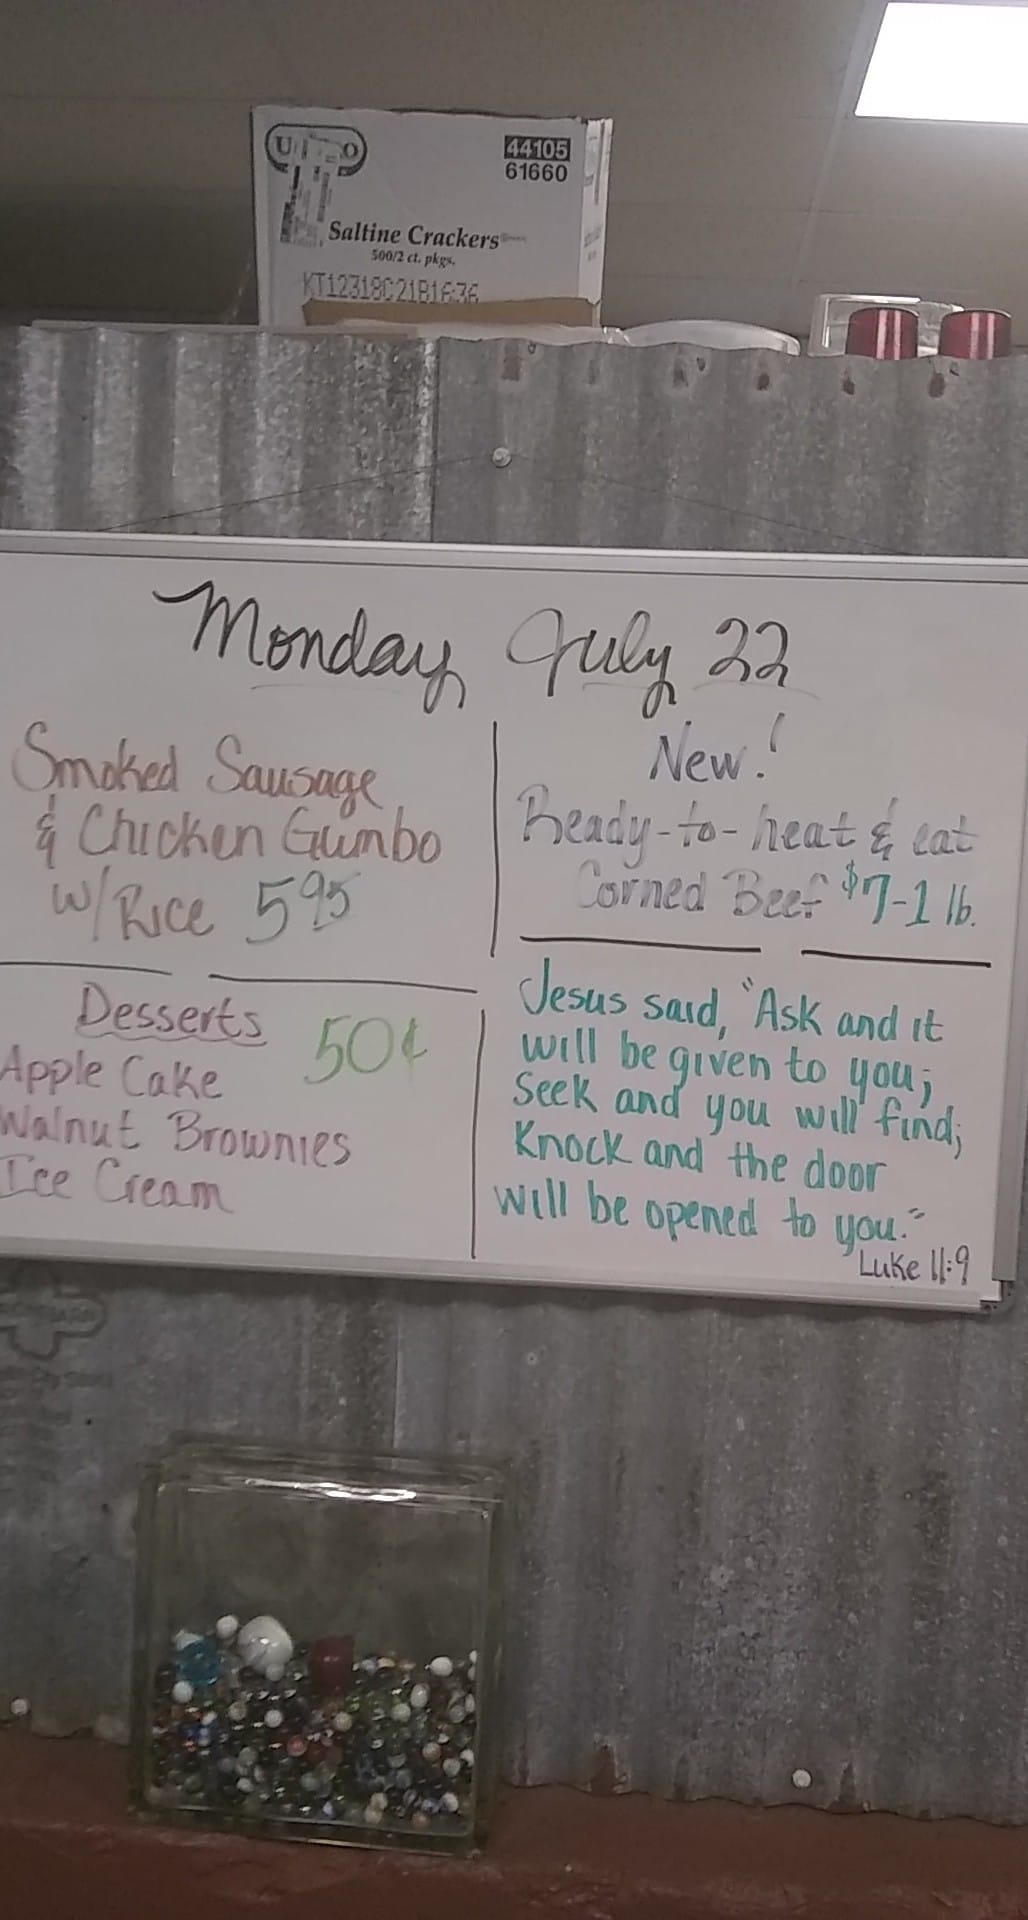 44105
61660
Saltine Crackers
500/2 ct. pkgs.
KT12318C21B1636
Monday July 22
Smoked Sausage
& Chicken Gumbo
w/Rice 5 95
New!
Ready-to-heat & eat
Corned Beef $7-1 lb.
Desserts 50¢
Apple Cake
Walnut Brownies
Ice Cream
Jesus said, "Ask and it
will be given to you;
Seek and you will find;
Knock and the door
will be opened to you."
Luke 11:9